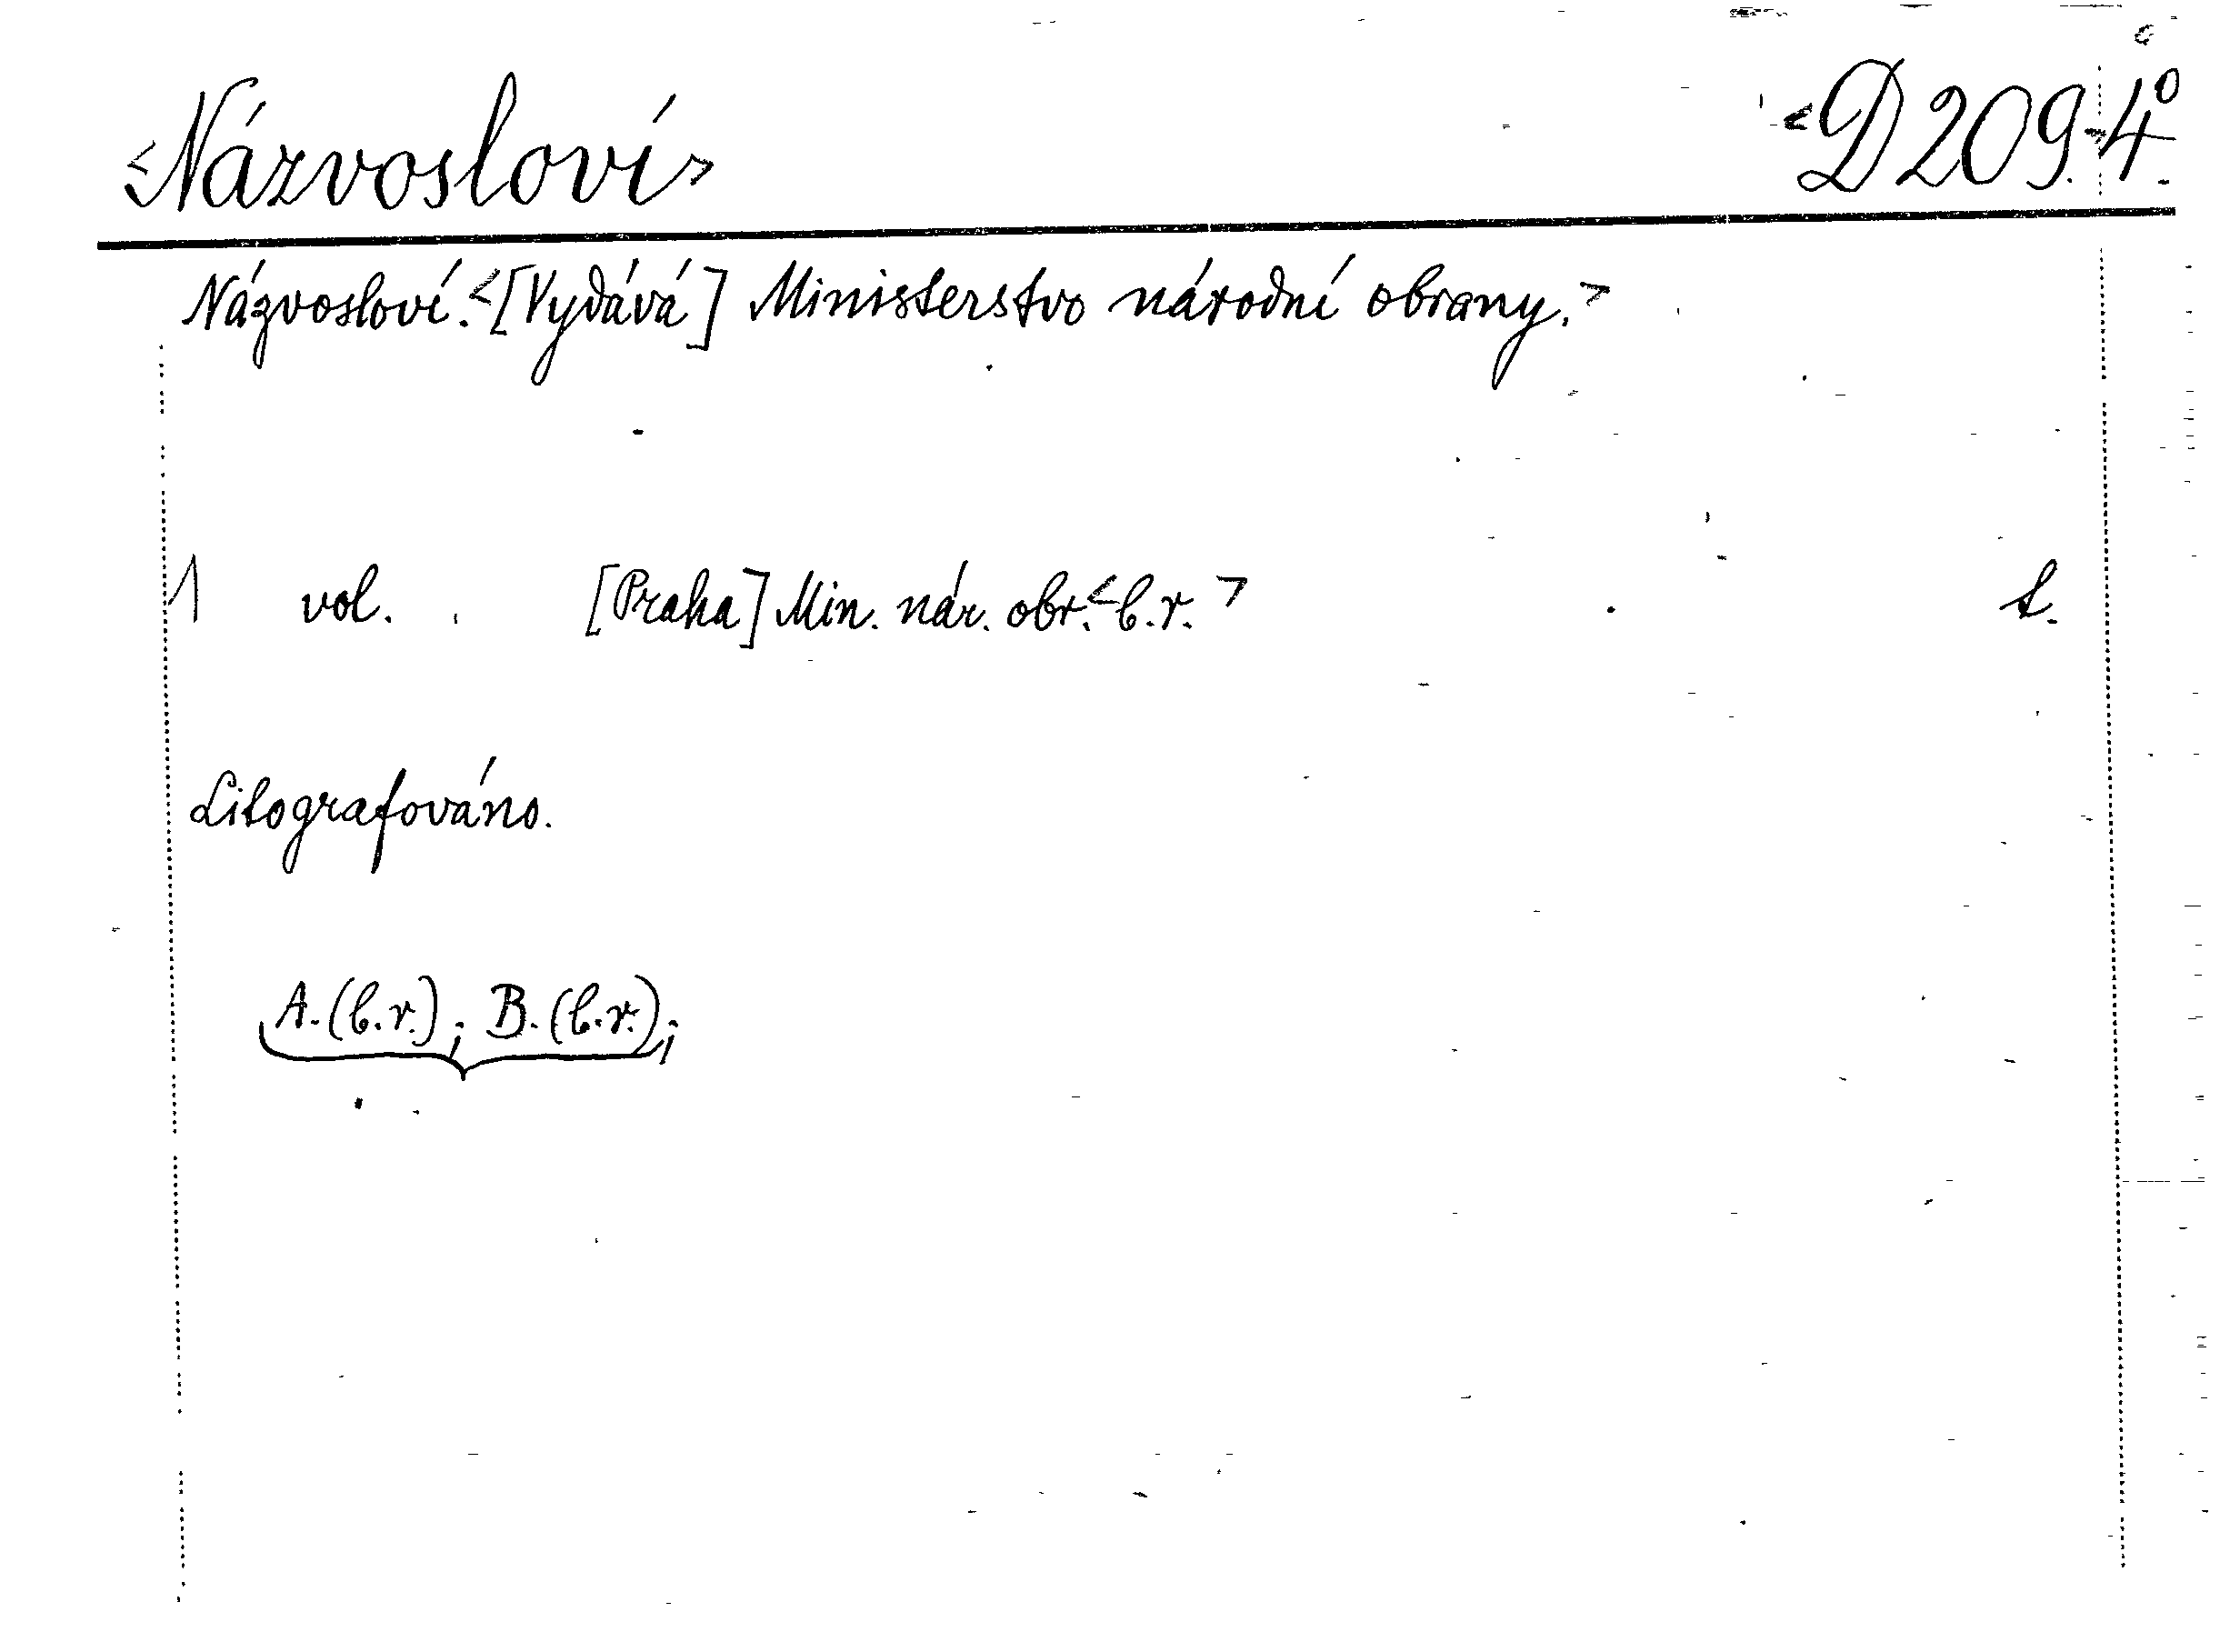 <Názvosloví> <D 209.-4°.
Názvosloví.<[Vydává] Ministerstvo národní obrany.>
1 vol. [Praha] Min. nár. obr.<b.r.> t.
Litografováno.
A.(b.r.); B.(b.r.);